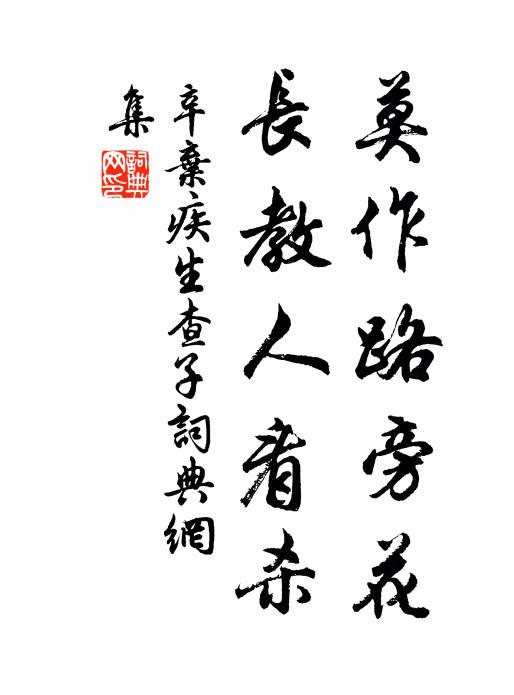 莫作路旁花
長教人看杀
辛棄疾生查子詞典網
集
詞典網印